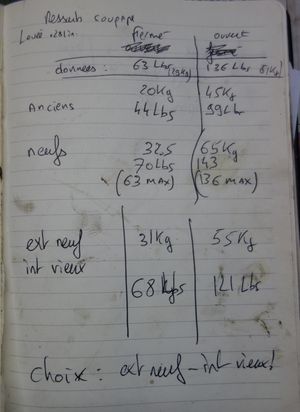 Ressorts soupape
fermé ouvert
données : 63 Lbs (29kg) 136 Lbs (61Kg)
20Kg 45Kg
Anciens 44Lbs 99Lb
neufs 32,5 65Kg
70Lbs 143
(63 MAX) (136 MAX)
ext neuf 31Kg 55Kg
int vieux
68 Lbs 121 Lbs
choix : ext neuf - int vieux!